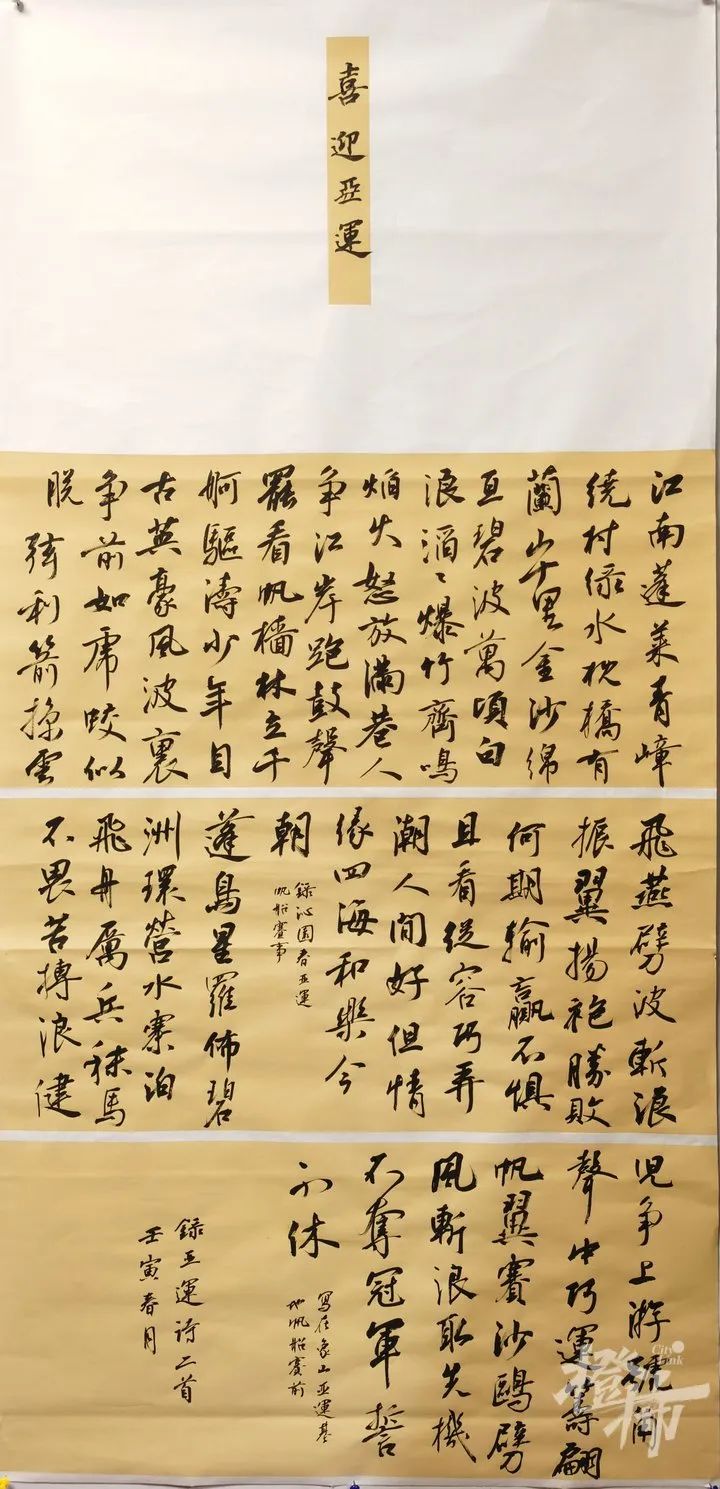 喜迎亞運
江南蓬莱青嶂
绕村绿水枕橋有
蘭山千里金沙绵
亙碧波萬頃白
浪滔〻爆竹齊鳴
焰火怒放滿巷人
争江岸跑鼓聲
罷看帆樯林立千
舸驅濤少年自
古英豪風波裏
争前如虎蛟似
脱弦利箭掠雲
飛燕劈波斬浪
振翼揚袍勝敗
何期输贏不惧
且看從容巧弄
潮人間好但情
缘四海和樂今
朝
録沁园春亚運
帆船賽事
蓬島星羅佈碧
洲環營水寨泊
飛舟厲兵秣馬
不畏苦搏浪健
児争上游號角
聲中巧運籌翩
帆翼賽沙鷗劈
風斬浪取先機
不奪冠軍誓
不休
寫在象山亚運基
地帆船賽前
録亞運詩二首
壬寅春月
橙柿